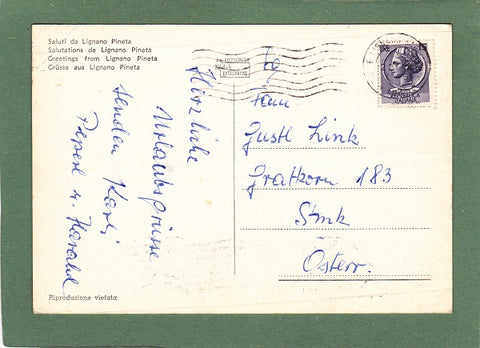 Saluti da Lignano Pineta
Salutations de Lignano Pineta
Greetings from Lignano Pineta
Grüsse aus Lignano Pineta
Herzliche
Urlaubsgrüsse
senden Karl,
Peperl u. Harald
Frau
Justl Link
Gratkorn 183
Stmk
Österr.
Riproduzione vietata